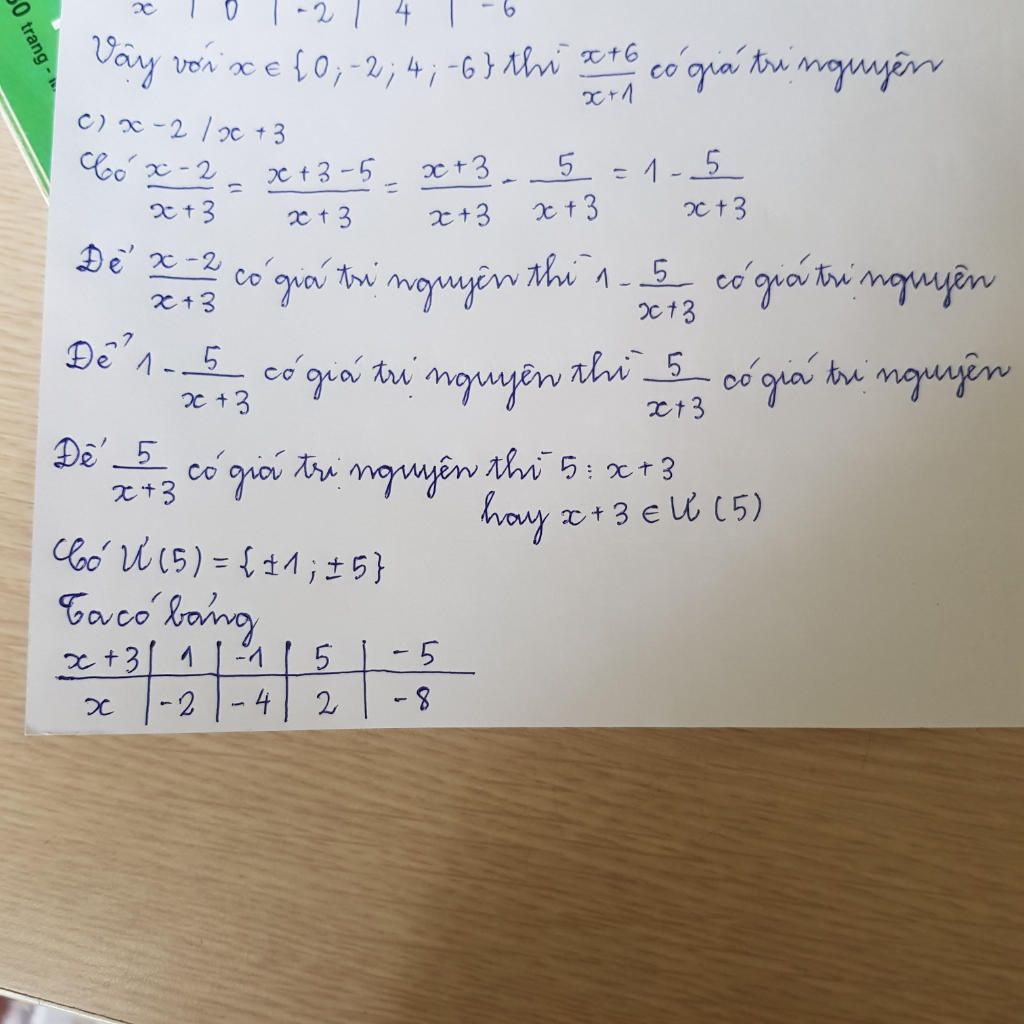 00 trang -
x | 0 | -2 | 4 | -6
Vậy với x ∈ {0; -2; 4; -6} thì (x+6)/(x+1) có giá trị nguyên
c) x - 2 / x + 3
Có (x - 2)/(x + 3) = (x + 3 - 5)/(x + 3) = (x + 3)/(x + 3) - 5/(x + 3) = 1 - 5/(x + 3)
Để (x - 2)/(x + 3) có giá trị nguyên thì 1 - 5/(x + 3) có giá trị nguyên
Để 1 - 5/(x + 3) có giá trị nguyên thì 5/(x + 3) có giá trị nguyên
Để 5/(x + 3) có giá trị nguyên thì 5 ⋮ x + 3
hay x + 3 ∈ Ư (5)
Có Ư (5) = {±1; ±5}
Ta có bảng
x + 3 | 1 | -1 | 5 | -5
x | -2 | -4 | 2 | -8